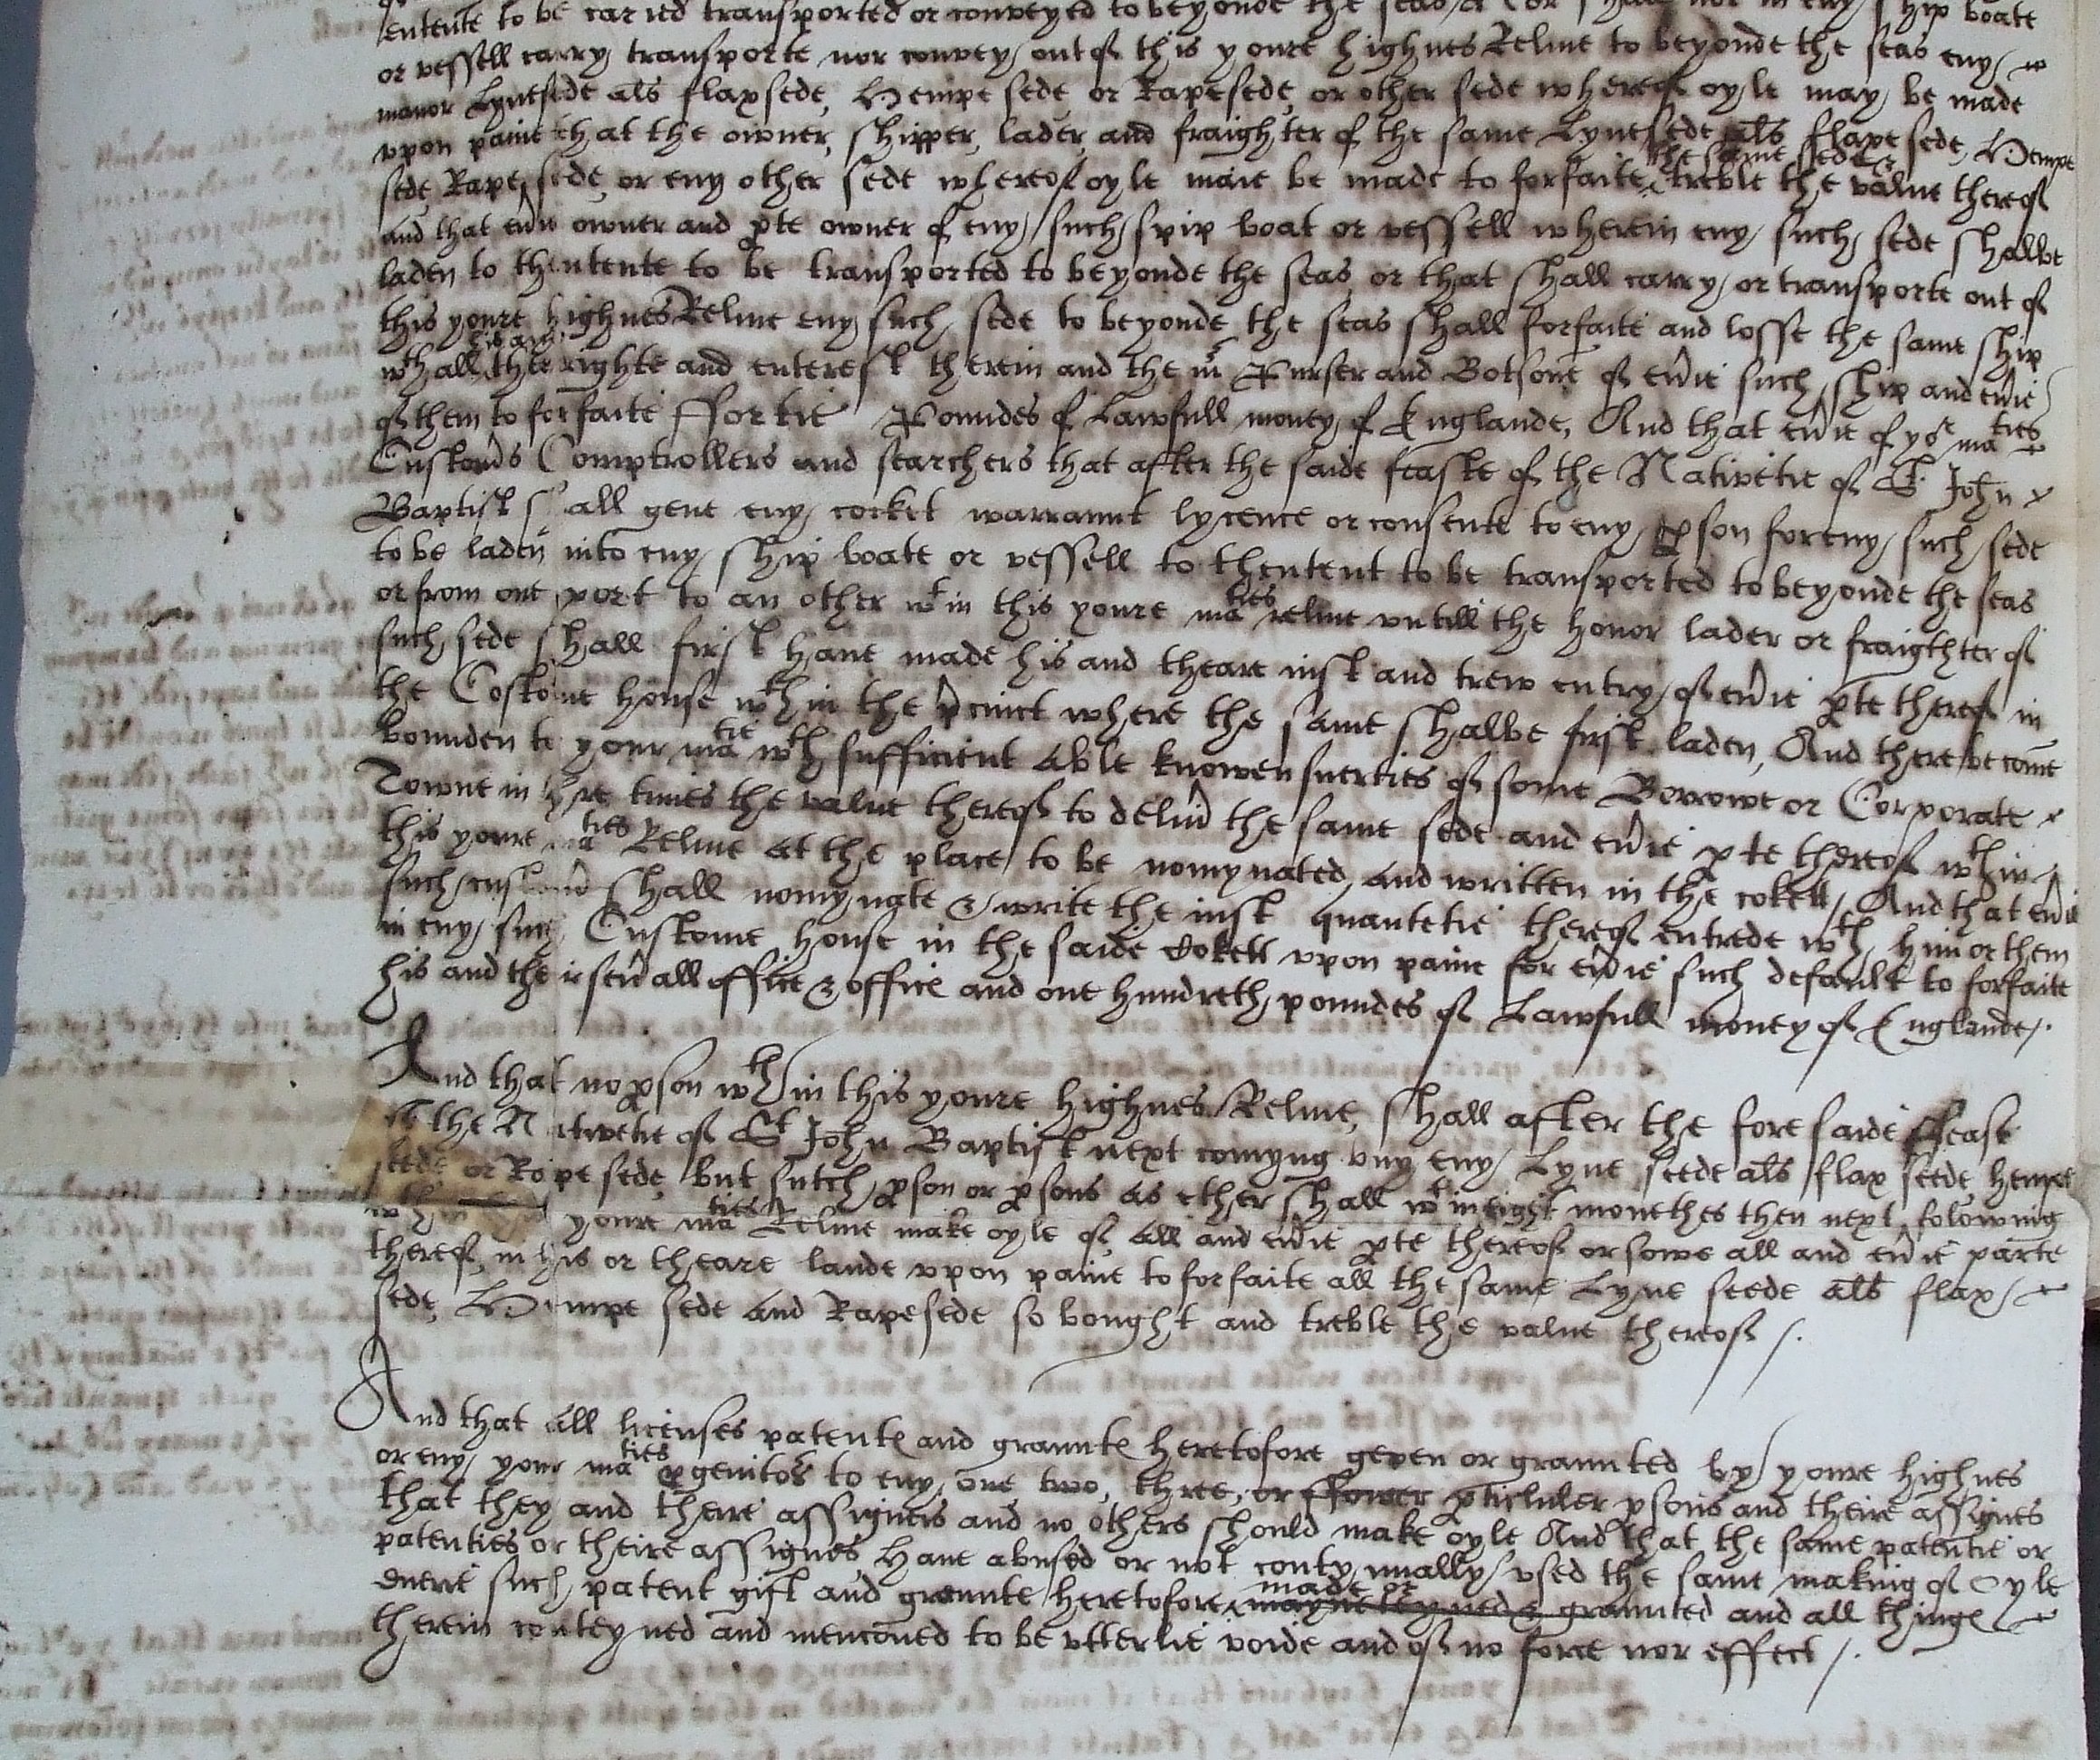 entente to be caried transported or conveyed to beyonde the seas shall nor in eny ship boate
or vessell carry transporte nor convey out of this youre highnes Relme to beyonde the seas eny
manor Lynesede als flaxsede, Hempe sede or Rapesede, or other sede whereof oyle may be made
vpon paine that the owner, shipper, lader, and fraighter of the same Lynesede als flaxe sede, Hempe
the same sede &
sede Rape sede or eny other sede whereof oyle maie be made to forfaite treble the value thereof
and that eu'ie owner and p'te owner of eny such spip boat or vessell wherein eny such sede shalbe
laden to thentente to be transported to beyonde the seas or that shall carry or transporte out of
this youre highnes Relme eny such sede to beyonde the seas shall forfaite and losse the same ship
wth all the righte and enterest therein and the mr Purser and Botsone of eu'ie such ship and eu'ie
of them to forfaite ffortie Poundes of Lawfull money of Englande, And that eu'ie of yor maties
Custom's Comptrollers and searchers that after the saide feaste of the Nativetie of St John
Baptist shall geue eny cocket warraunt lycence or consente to eny p'son for eny such sede
to be laden into eny ship boate or vessell to thentent to be transported to beyonde the seas
or from one port to an other wt in this youre maties relme vntill the honor lader or fraigthter of
such sede shall first haue made his and theare iust and trew entry of eu'ie p'te thereof in
the Costome house wth in the p'cinct where the same shalbe first laden, And there become
bounden to your matie wth sufficient able knowen suerties of some Borrowe or Corporate
Towne in thre times the value thereof to deliu' the same sede and eu'ie p'te thereof wthin
this youre maties Relme at the place to be nomynated and written in the cokett, And that eu'ie
such custom' shall nomynate & write the iust quantetie thereof entrede wth him or them
in eny such Custome house in the saide Cokett vpon paine for eu'ie such default to forfaite
his and their seu'all office & office and one hundreth poundes of Lawfull money of Englande /.
And that no p'son wth in this youre highnes Relme, shall after the fore saide ffeast
of the Natiuetie of St John Baptist next comyng buy eny Lyne seede als flax seede, hempe
seede or Rape sede, but sutch p'son or p'sons as ether shall wt in eight monethes then next folowing
youre maties Relme make oyle of all and eu'ie p'te thereof or sowe all and eu'ie parte
thereof, in his or theare lande vpon paine to forfaite all the same Lyne seede als flax
sede, Hempe sede and Rapesede so bought and treble the value thereof /.
And that all licenses patentes and grauntes heretofore geven or graunted by youre highnes
or eny your maties p'genitors to eny, one, two, three, or ffower p'ticluler p'sons and theire assignes
that they and theire assignes and no others should make oyle And that the same patentie or
patenties or theire assignes Haue abused or not contynually vsed the same making of Oyle
made or
euerie such patent gift and graunte heretofore mayneteyned & graunted and all thinges
therein conteyned and mencioned to be vtterlie voide and of no force nor effect /.